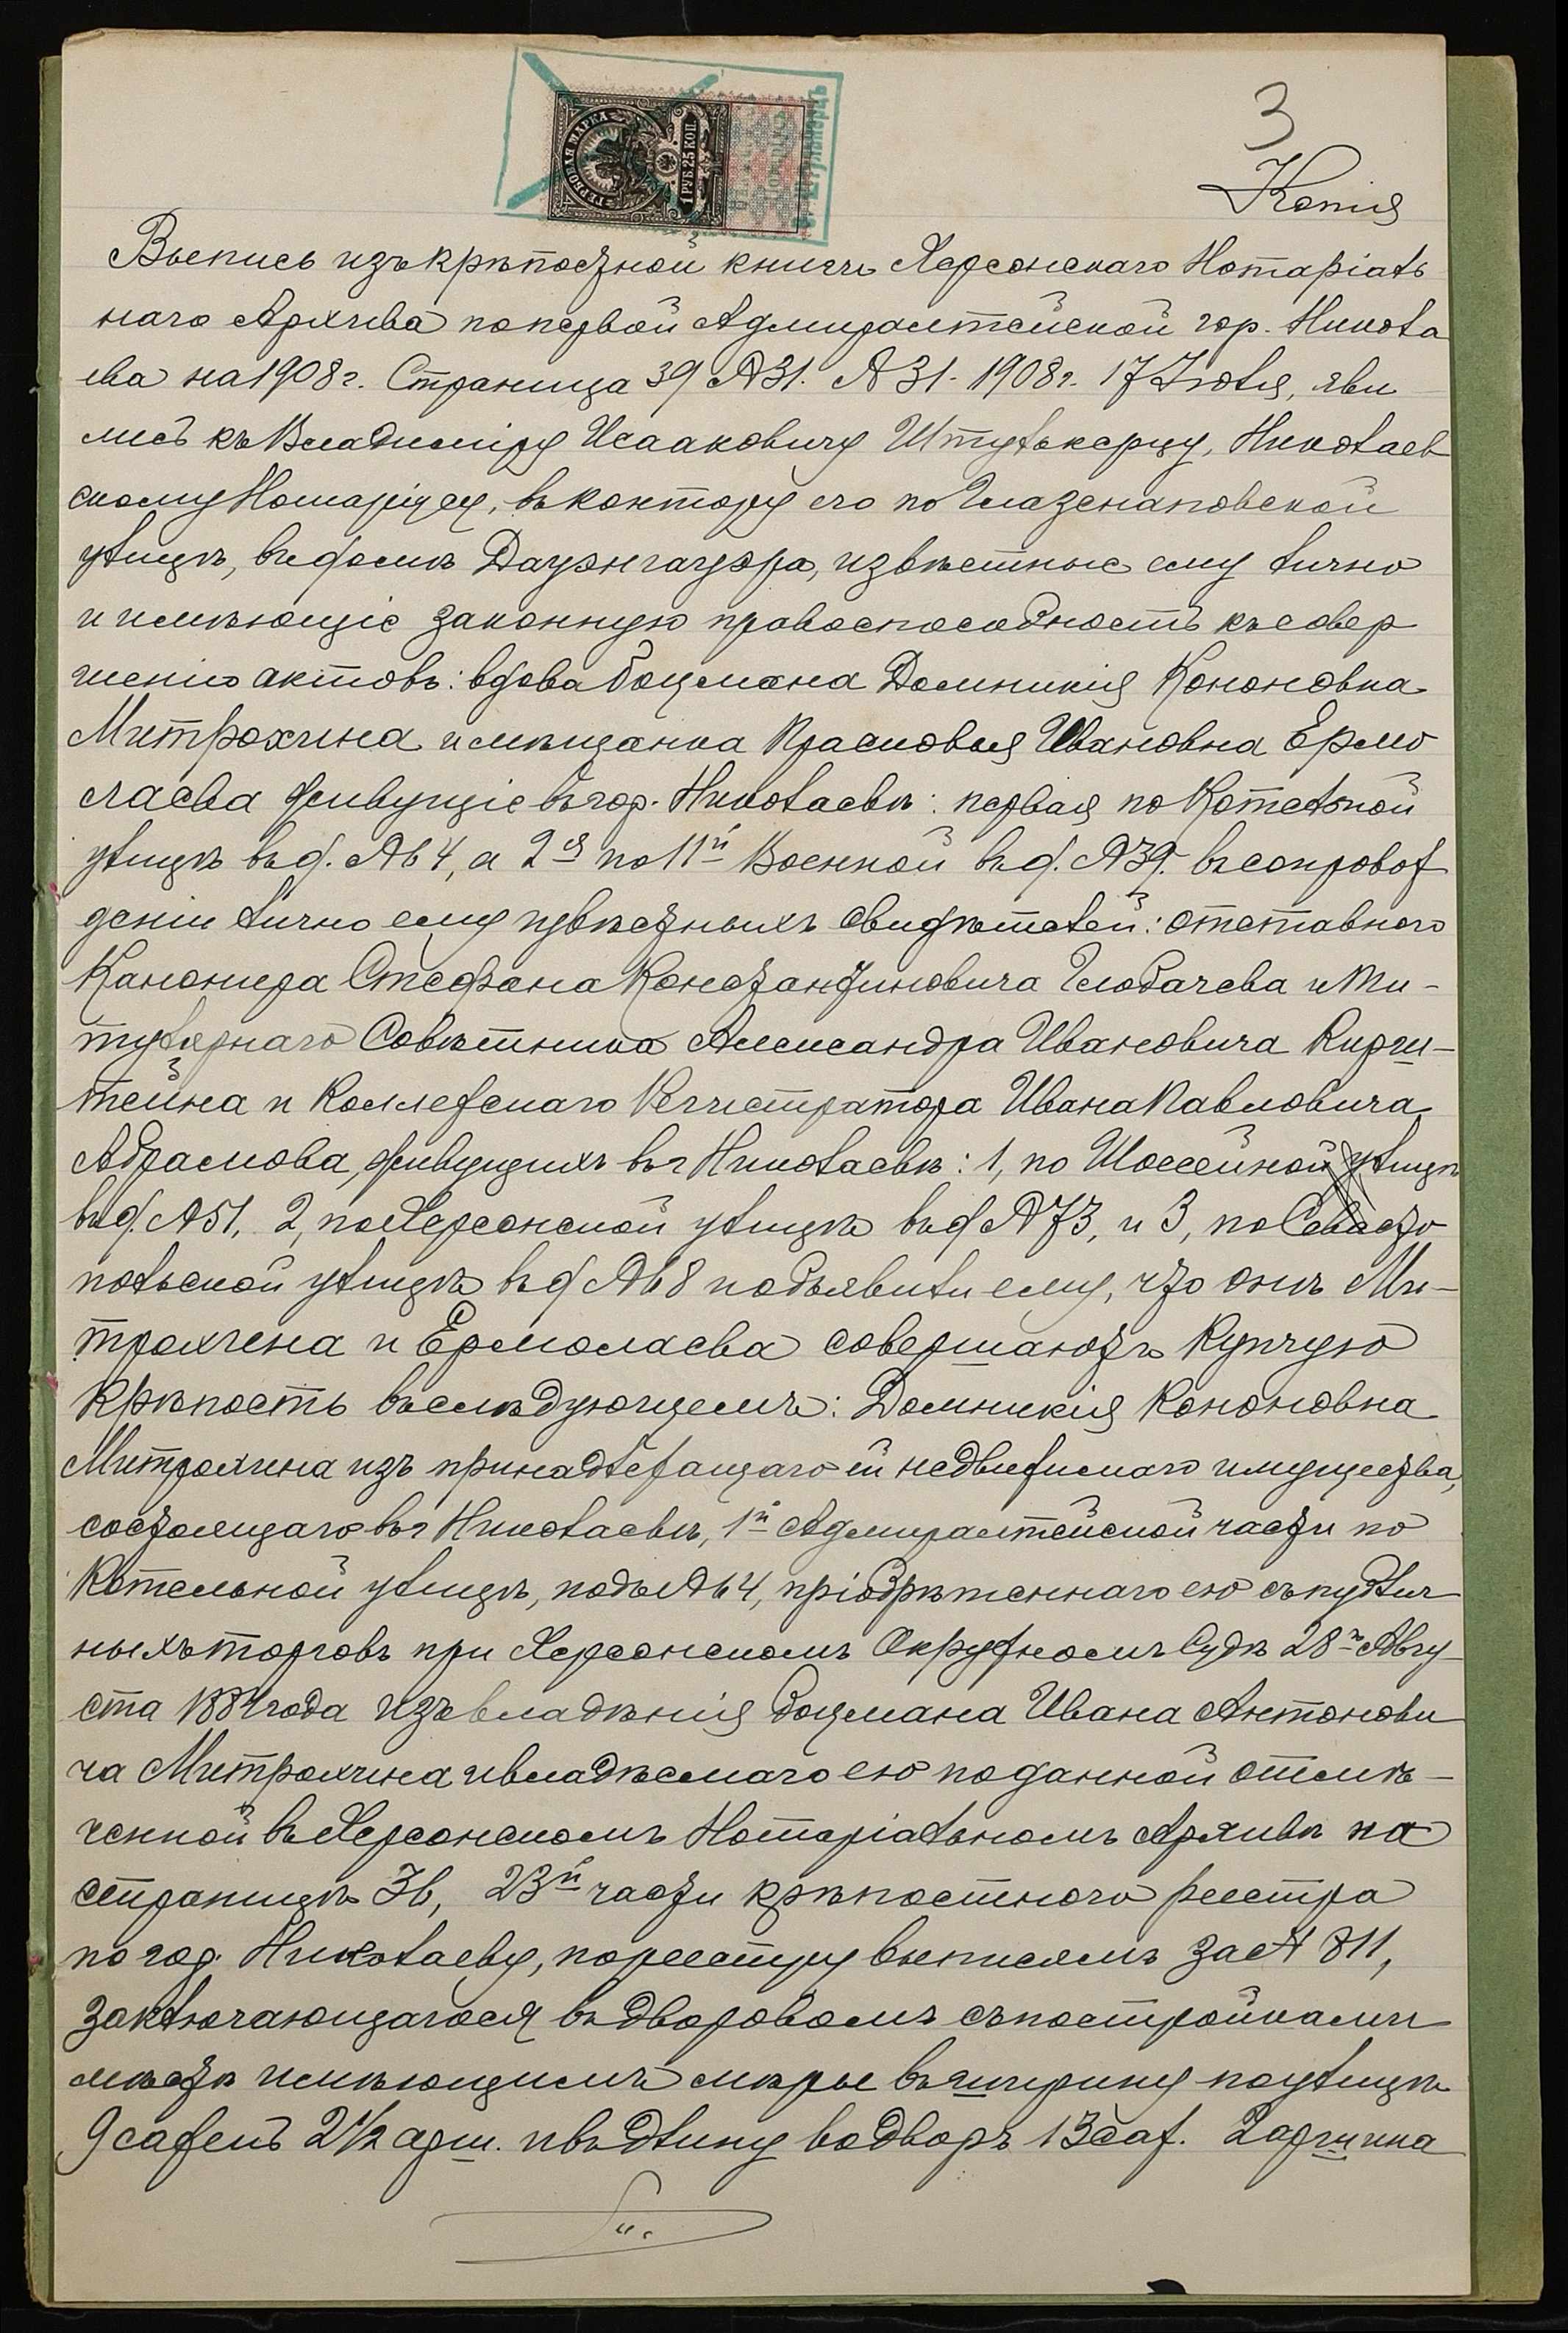 3
Копія
ГЕРБОВАЯ МАРКА
1 РУБ. 25 КОП.
Выпись изъ крѣпостной книги Херсонскаго Нотаріаль
наго Архива по первой Адмиралтейской гор. Никола
ева на 1908 г. Страница 39 № 31. № 31. 1908 г. 17 Іюля, яви
лись къ Владиміру Исааковичу Штулькерцу, Николаев
скому Нотаріусу, въ контору его по Глазенаповской
улицѣ, въ домѣ Дауэнгауэра, извѣстные ему лично
и имѣющіе законную правоспособность къ совер
шенію актовъ: вдова боцмана Домникія Кононовна
Митрохина и мѣщанка Прасковья Ивановна Ермо
лаева живущіе въ гор. Николаевѣ: первая по Котельной
улицѣ въ д. № 64, а 2я по 11й Военной въ д. № 39. въ сопровож
деніи лично ему извѣстныхъ свидѣтелей: отставного
Канонира Стефана Константиновича Глобачева и Ти-
тулярнаго Совѣтника Александра Ивановича Кирш-
тейна и Коллежскаго Регистратора Ивана Павловича
Абрамова, живущихъ въ г Николаевѣ: 1, по Шоссейной улицѣ
въ д. № 51, 2, по Херсонской улицѣ въ д № 73, и 3, по Севасто
польской улицѣ въ д № 68 и объявили ему, что онѣ Ми-
трохина и Ермолаева совершаютъ Купчую
Крѣпость въ слѣдующемъ: Домникія Кононовна
Митрохина изъ принадлежащаго ей недвижимаго имущества,
состоящаго въ г Николаевѣ, 1й Адмиралтейской части по
Котельной улицѣ, подъ № 64, пріобрѣтеннаго ею съ публич
ныхъ торговъ при Херсонскомъ Окружномъ Судѣ 28го Авгу
ста 1884 года изъ владѣнія боцмана Ивана Антонови
ча Митрохина и владѣемаго ею по данной отмѣ-
ченной въ Херсонскомъ Нотаріальномъ Архивѣ на
страницѣ 36, 23й части крѣпостного реестра
по гор. Николаеву, по реестру выписямъ за № 811,
заключающагося въ дворовомъ съ постройками
мѣстѣ имѣющимъ мѣры въ ширину по улицѣ
9 сажень 2½ арш. и въ длину во дворъ 13 саж. 2 аршина